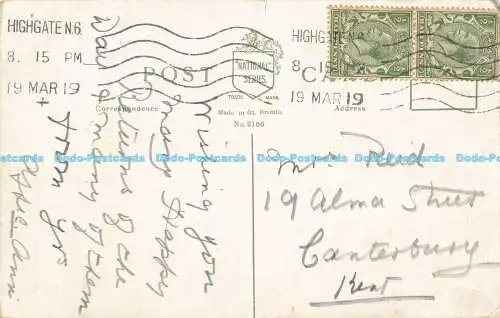 HIGHGATE N.6.
8. 15 PM
19 MAR 19
HIGHGATE N.6.
8. 15
19 MAR 19
POST CARD
"NATIONAL" SERIES
TRADE MARK
Correspondence
Made in Gt. Britain
No. 2150
Address
Wishing you
many Happy
returns of the
day
of them
from yrs
Mrs Reid
19 Alma Street
Canterbury
Kent
Dodo-Postcards Dodo-Postcards Dodo-Postcards Dodo-Postcards Dodo-Postcards Dodo-Postcards Dodo-Postcards